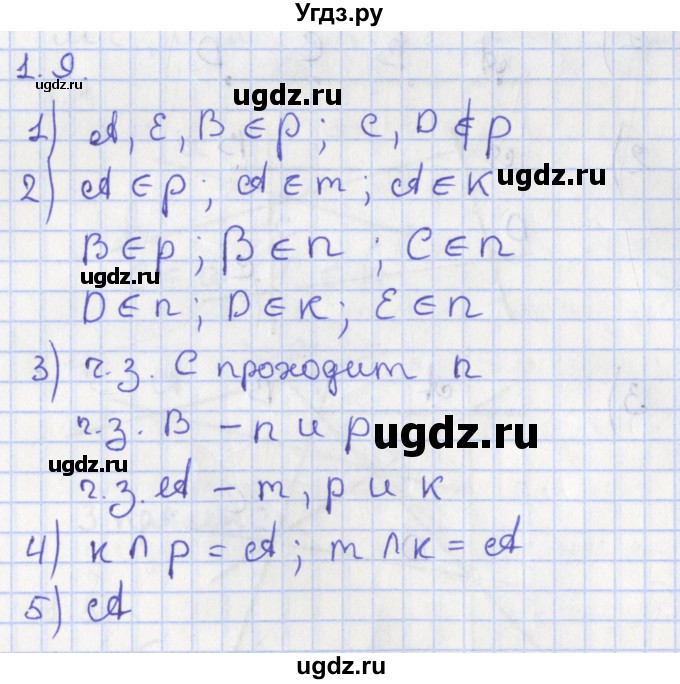 Угдз.ру
1.9.
ugdz.ru
ugdz.ru
1) A, E, B ∈ p ; C, D ∉ p
2) A ∈ p ; A ∈ m ; A ∈ K
ugdz.ru
B ∈ p ; B ∈ n ; C ∈ n
ugdz.ru
D ∈ n ; D ∈ K ; E ∈ n
3) ч.з. C проходит n
ч.з. B – n и p
ugdz.ru
ugdz.ru
ч.з. A – m, p и K
4) K ∩ p = A ; m ∩ K = A
ugdz.ru
5) A
ugdz.ru